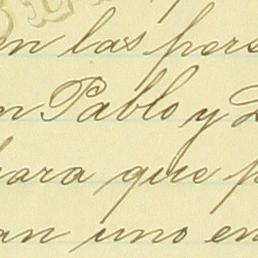 en las pers
n Pablo y
para que p
an uno en